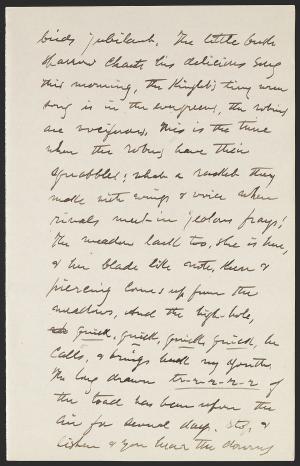 birds jubilant. The little bush
sparrow chants his delicious song
this morning, the Kinglet's tiny wren
song is in the evergreens, the robins
are vociferous. This is the time
when the robins have their
squabbles; what a racket they
make with wings & voice when
rivals meet in jealous frays!
The meadow lark too, she is here,
& her blade like note, thin &
piercing comes up from the
meadows, And the high-hole,
Quick, Quick, Quick, Quick, he
calls, & brings back my youth.
The long drawn tr-r-r-r-r of
the toad has been upon the
air for several days. Stop &
listen & you hear the downy